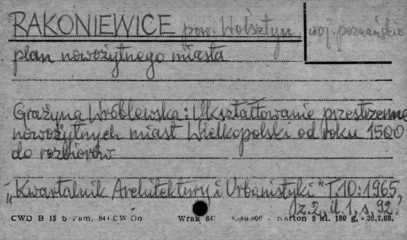 RAKONIEWICE pow. Wolsztyn woj. poznańskie
plan nowożytnego miasta
Grażyna Wróblewska: Ukształtowanie przestrzenne
nowożytnych miast Wielkopolski od roku 1500
do rozbiorów
"Kwartalnik Architektury i Urbanistyki" T.10:1965,
z.2, il.1, s.92.
CWD B 15 b Zam. CWOn Karton 3 kl. 180 g. - 30.7.68.